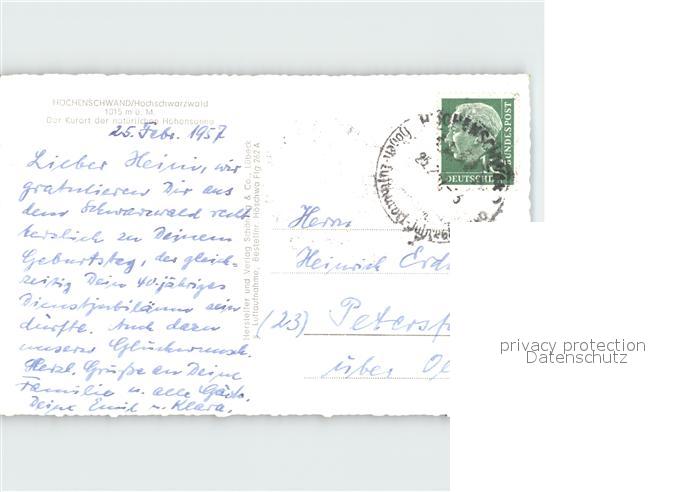 HÖCHENSCHWAND/Hochschwarzwald
1015 m ü. M.
Der Kurort der natürlichen Höhensonne
25. Febr. 1957
Lieber Heini, wir
gratulieren Dir aus
dem Schwarzwald recht
herzlich zu Deinem
Geburtstag, der gleich-
zeitig Dein 40 jähriges
Dienstjubiläum sein
dürfte. Auch dazu
unseren Glückwunsch.
Herzl. Grüße an Deine
Familie u. alle Gäste.
Deine Emil u. Klara.
Hersteller und Verlag Schöning & Co., Lübeck
Luftaufnahme, Bestellnr. Höschwa Flg 262 A
DEUTSCHE
BUNDESPOST
Herrn
Heinrich Erd
(23) Petersf
über Ol
privacy protection
Datenschutz